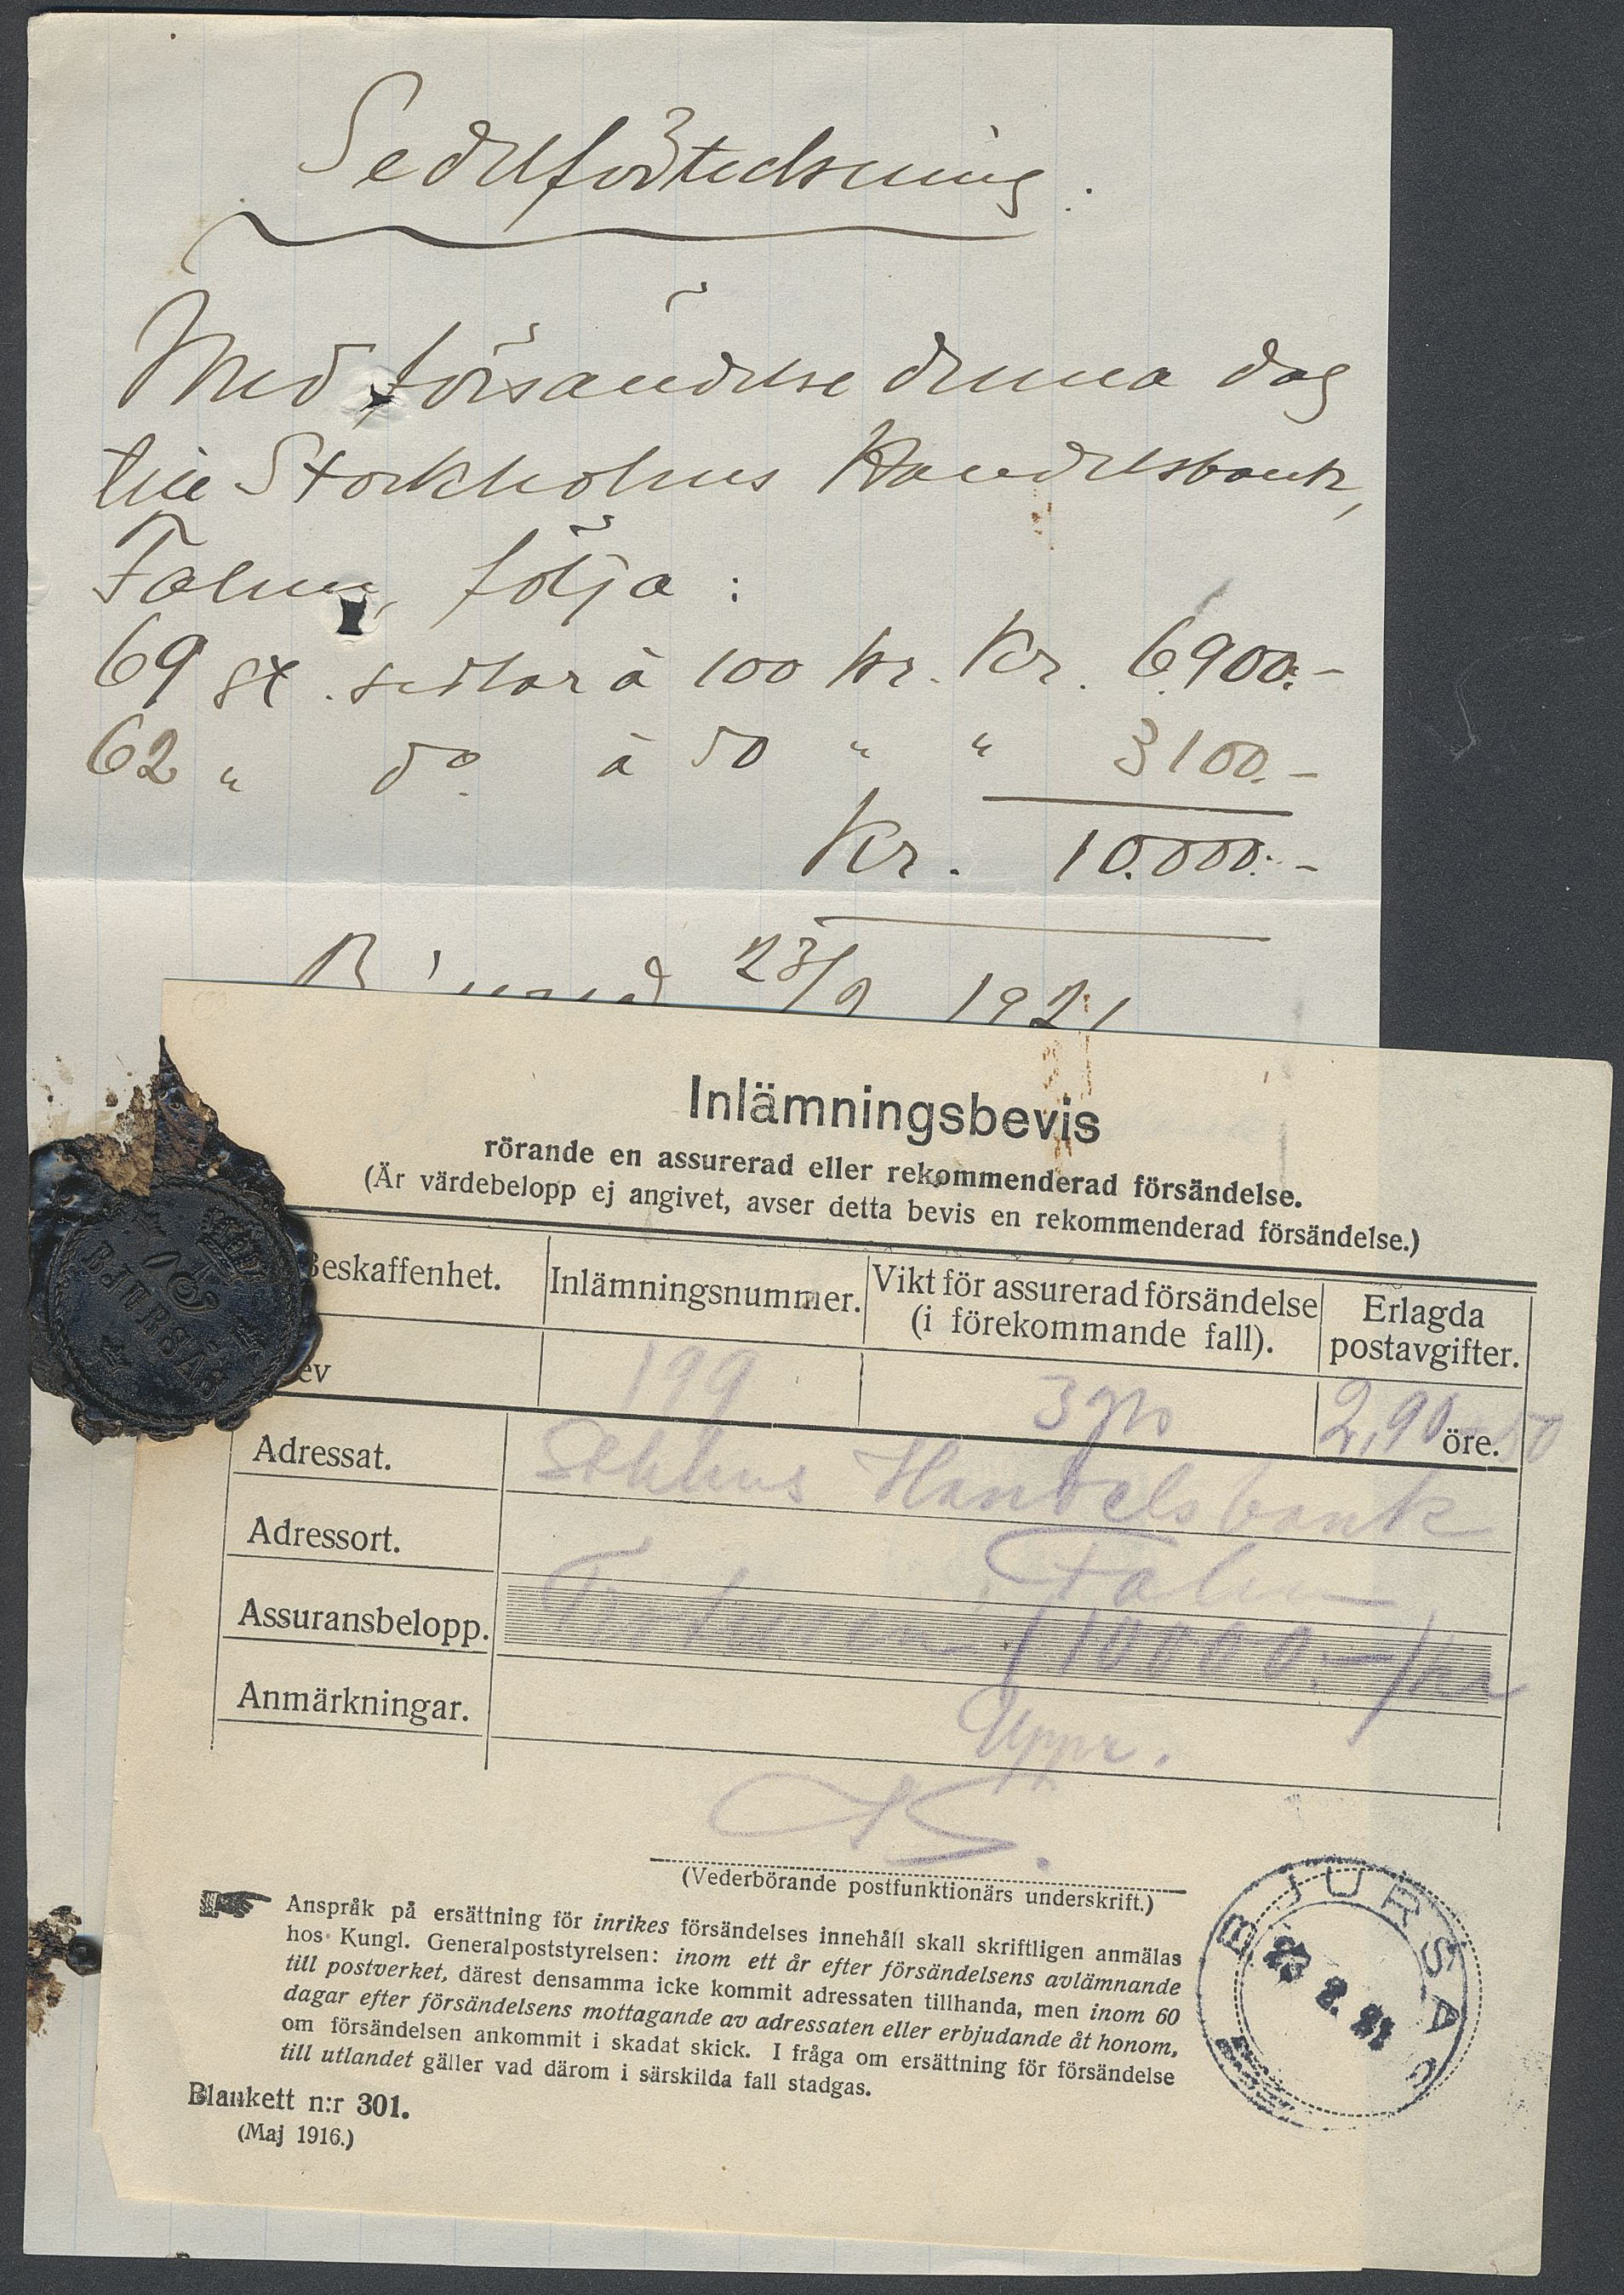 Sedelförteckning.
Med försändelse denna dag
till Stockholms Handelsbank,
Falun, följa:
69 st. sedlar à 100 kr. Kr. 6.900:-
62 " do. à 50 " " 3100.-
Kr. 10.000:-
23/9 1921
Inlämningsbevis
rörande en assurerad eller rekommenderad försändelse.
(Är värdebelopp ej angivet, avser detta bevis en rekommenderad försändelse.)
Beskaffenhet. Inlämningsnummer. Vikt för assurerad försändelse (i förekommande fall). Erlagda postavgifter.
ev 199 3 gr 2,90 öre.
Adressat. Sthlms Handelsbank
Adressort. Falun
Assuransbelopp. (10000.-) kr
Anmärkningar. Uppr.
(Vederbörande postfunktionärs underskrift.)
Anspråk på ersättning för inrikes försändelses innehåll skall skriftligen anmälas
hos Kungl. Generalpoststyrelsen: inom ett år efter försändelsens avlämnande
till postverket, därest densamma icke kommit adressaten tillhanda, men inom 60
dagar efter försändelsens mottagande av adressaten eller erbjudande åt honom,
om försändelsen ankommit i skadat skick. I fråga om ersättning för försändelse
till utlandet gäller vad därom i särskilda fall stadgas.
Blankett n:r 301.
(Maj 1916.)
BJURSÅS
BJURSÅS